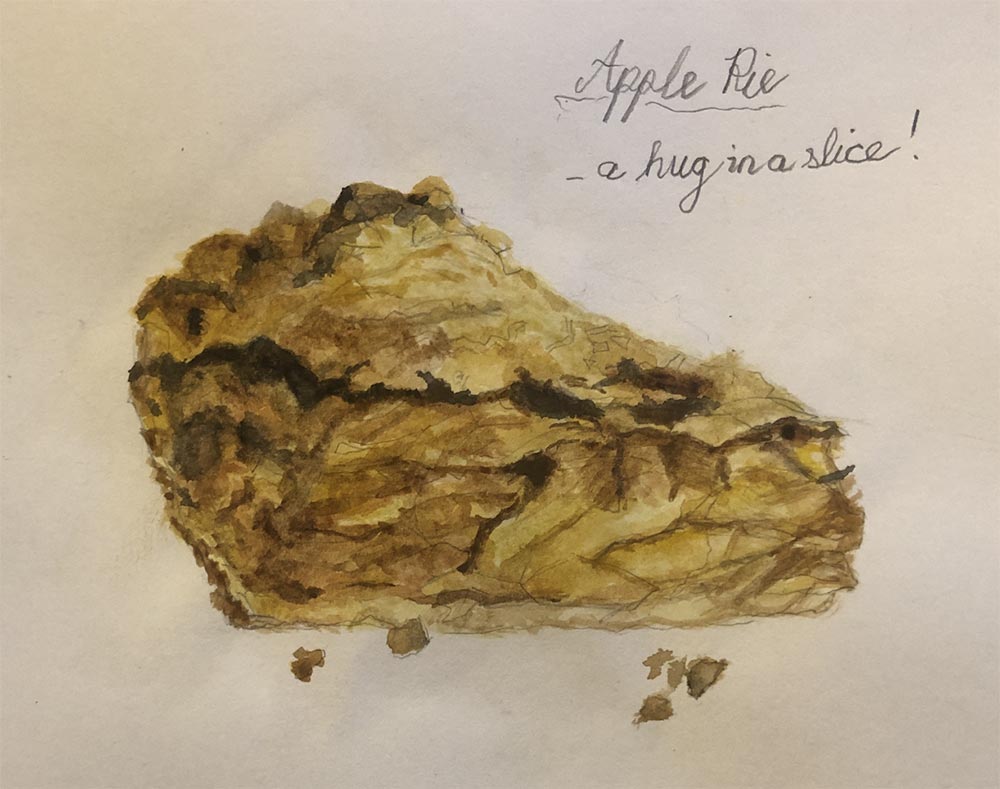 Apple Pie
- a hug in a slice!